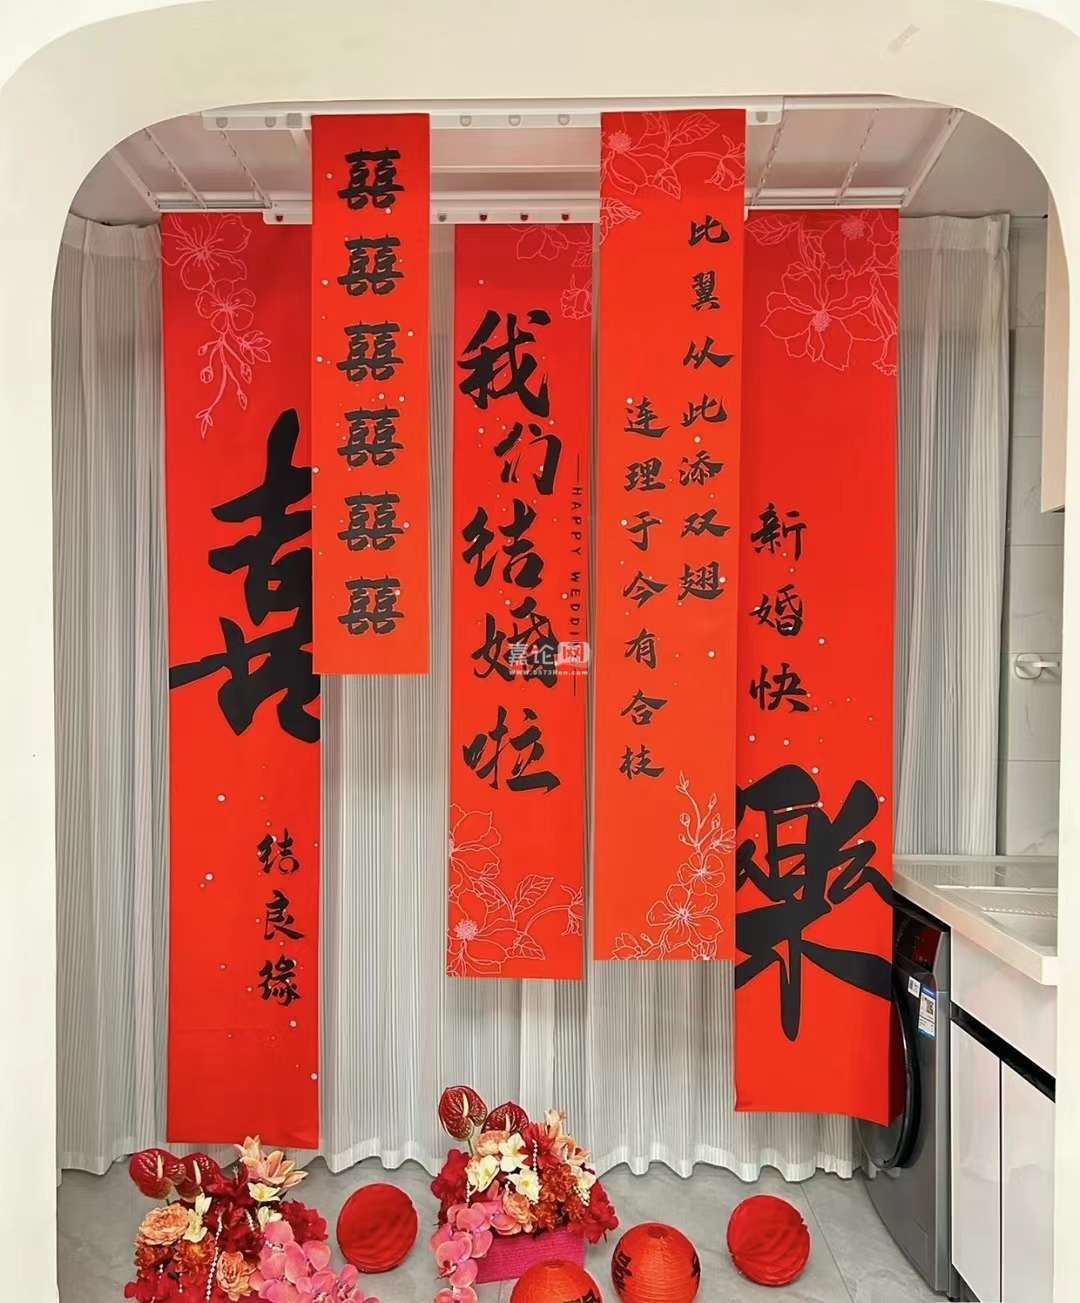 喜结良缘
囍囍囍囍囍囍
我们结婚啦
HAPPY WEDDI
比翼从此添双翅
连理于今有合枝
新婚快樂
嘉论网
www.0573Ren.com